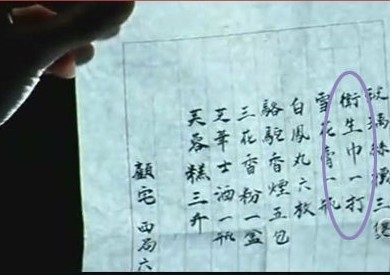 玻璃絲襪三
衛生巾一打
雪花膏一瓶
白鳳丸六放
駱駝香煙五包
三花香粉一盒
芝華士酒一瓶
芙蓉糕三斤
顧宅 四局六